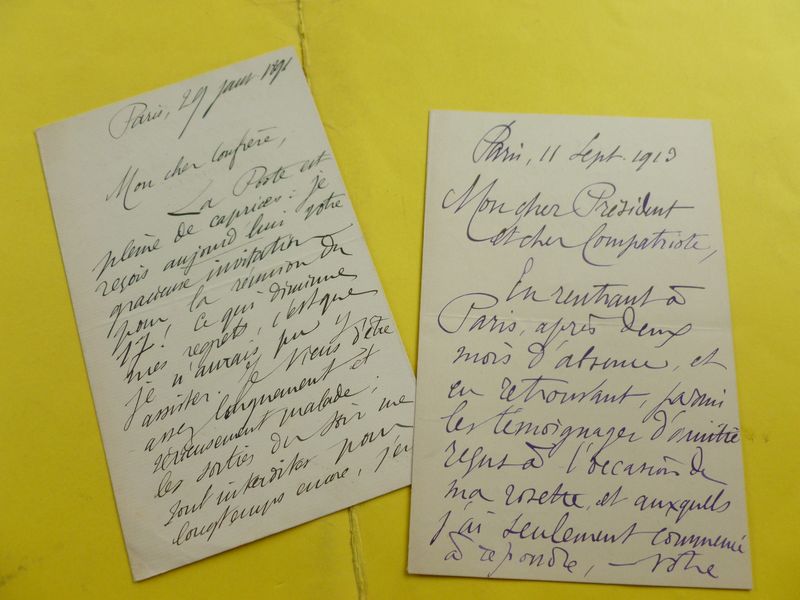 Paris, 29 janv. 1891
Mon cher Confrère,
La Poste est
pleine de caprices : je
reçois aujourd'hui votre
gracieuse invitation
pour la réunion du
17! Ce qui diminue
mes regrets, c'est que
je n'aurais pu y
assister. Je viens d'être
assez longuement et
sérieusement malade ;
les sorties du soir me
sont interdites pour
longtemps encore, j'en
Paris, 11 Sept. 1913
Mon cher Président
et cher Compatriote,
En rentrant à
Paris, après deux
mois d'absence, et
en retrouvant, parmi
les témoignages d'amitié
reçus à l'occasion de
ma rosette, et auxquels
j'ai seulement commencé
à répondre, — votre